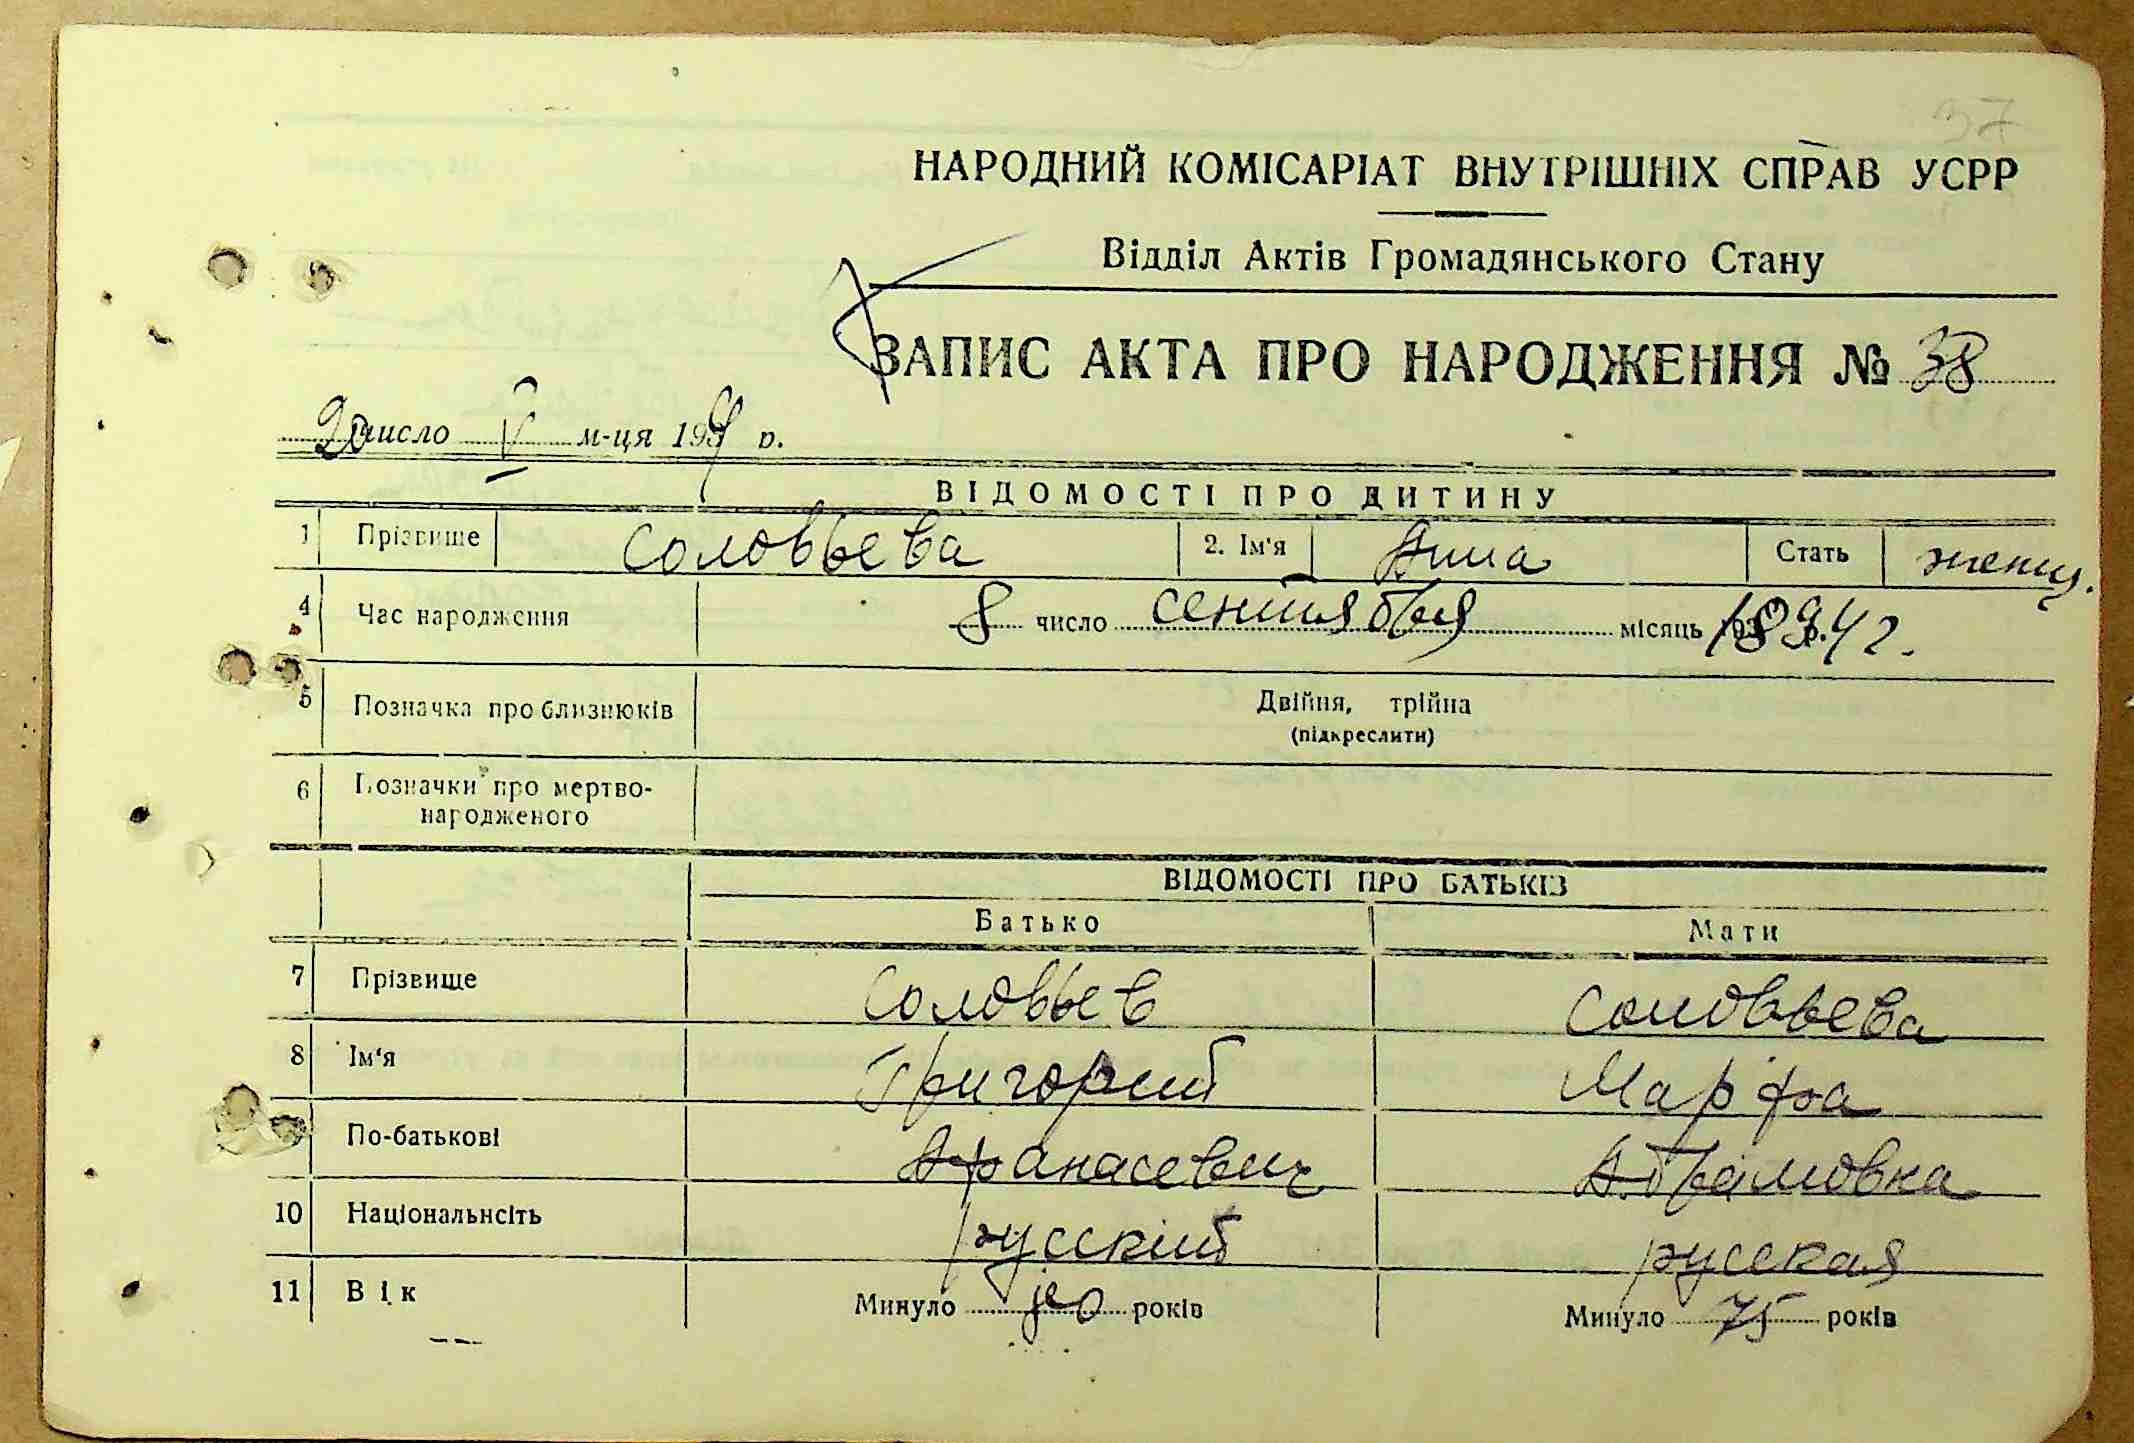 37
НАРОДНИЙ КОМІСАРІАТ ВНУТРІШНІХ СПРАВ УСРР
Відділ Актів Громадянського Стану
ЗАПИС АКТА ПРО НАРОДЖЕННЯ № 38
20 число V м-ця 193 р.
ВІДОМОСТІ ПРО ДИТИНУ
1 Прізвище Соловьева 2. Ім'я Анна Стать женщ.
4 Час народження 8 число сентября місяць 1894 г.
5 Позначка про близнюків Двійня, трійна
(підкреслити)
6 Позначки про мертво-
народженого
ВІДОМОСТІ ПРО БАТЬКІВ
Батько Мати
7 Прізвище Соловьев Соловьева
8 Ім'я Григорий Марфа
По-батькові Афанасевич Абрамовна
10 Національнсіть русский русская
11 Вік Минуло років Минуло 75 років